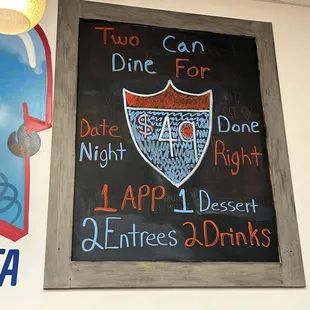 Two Can
Dine For
$49
Date Night
Done Right
1 APP 1 Dessert
2 Entrees 2 Drinks
TA